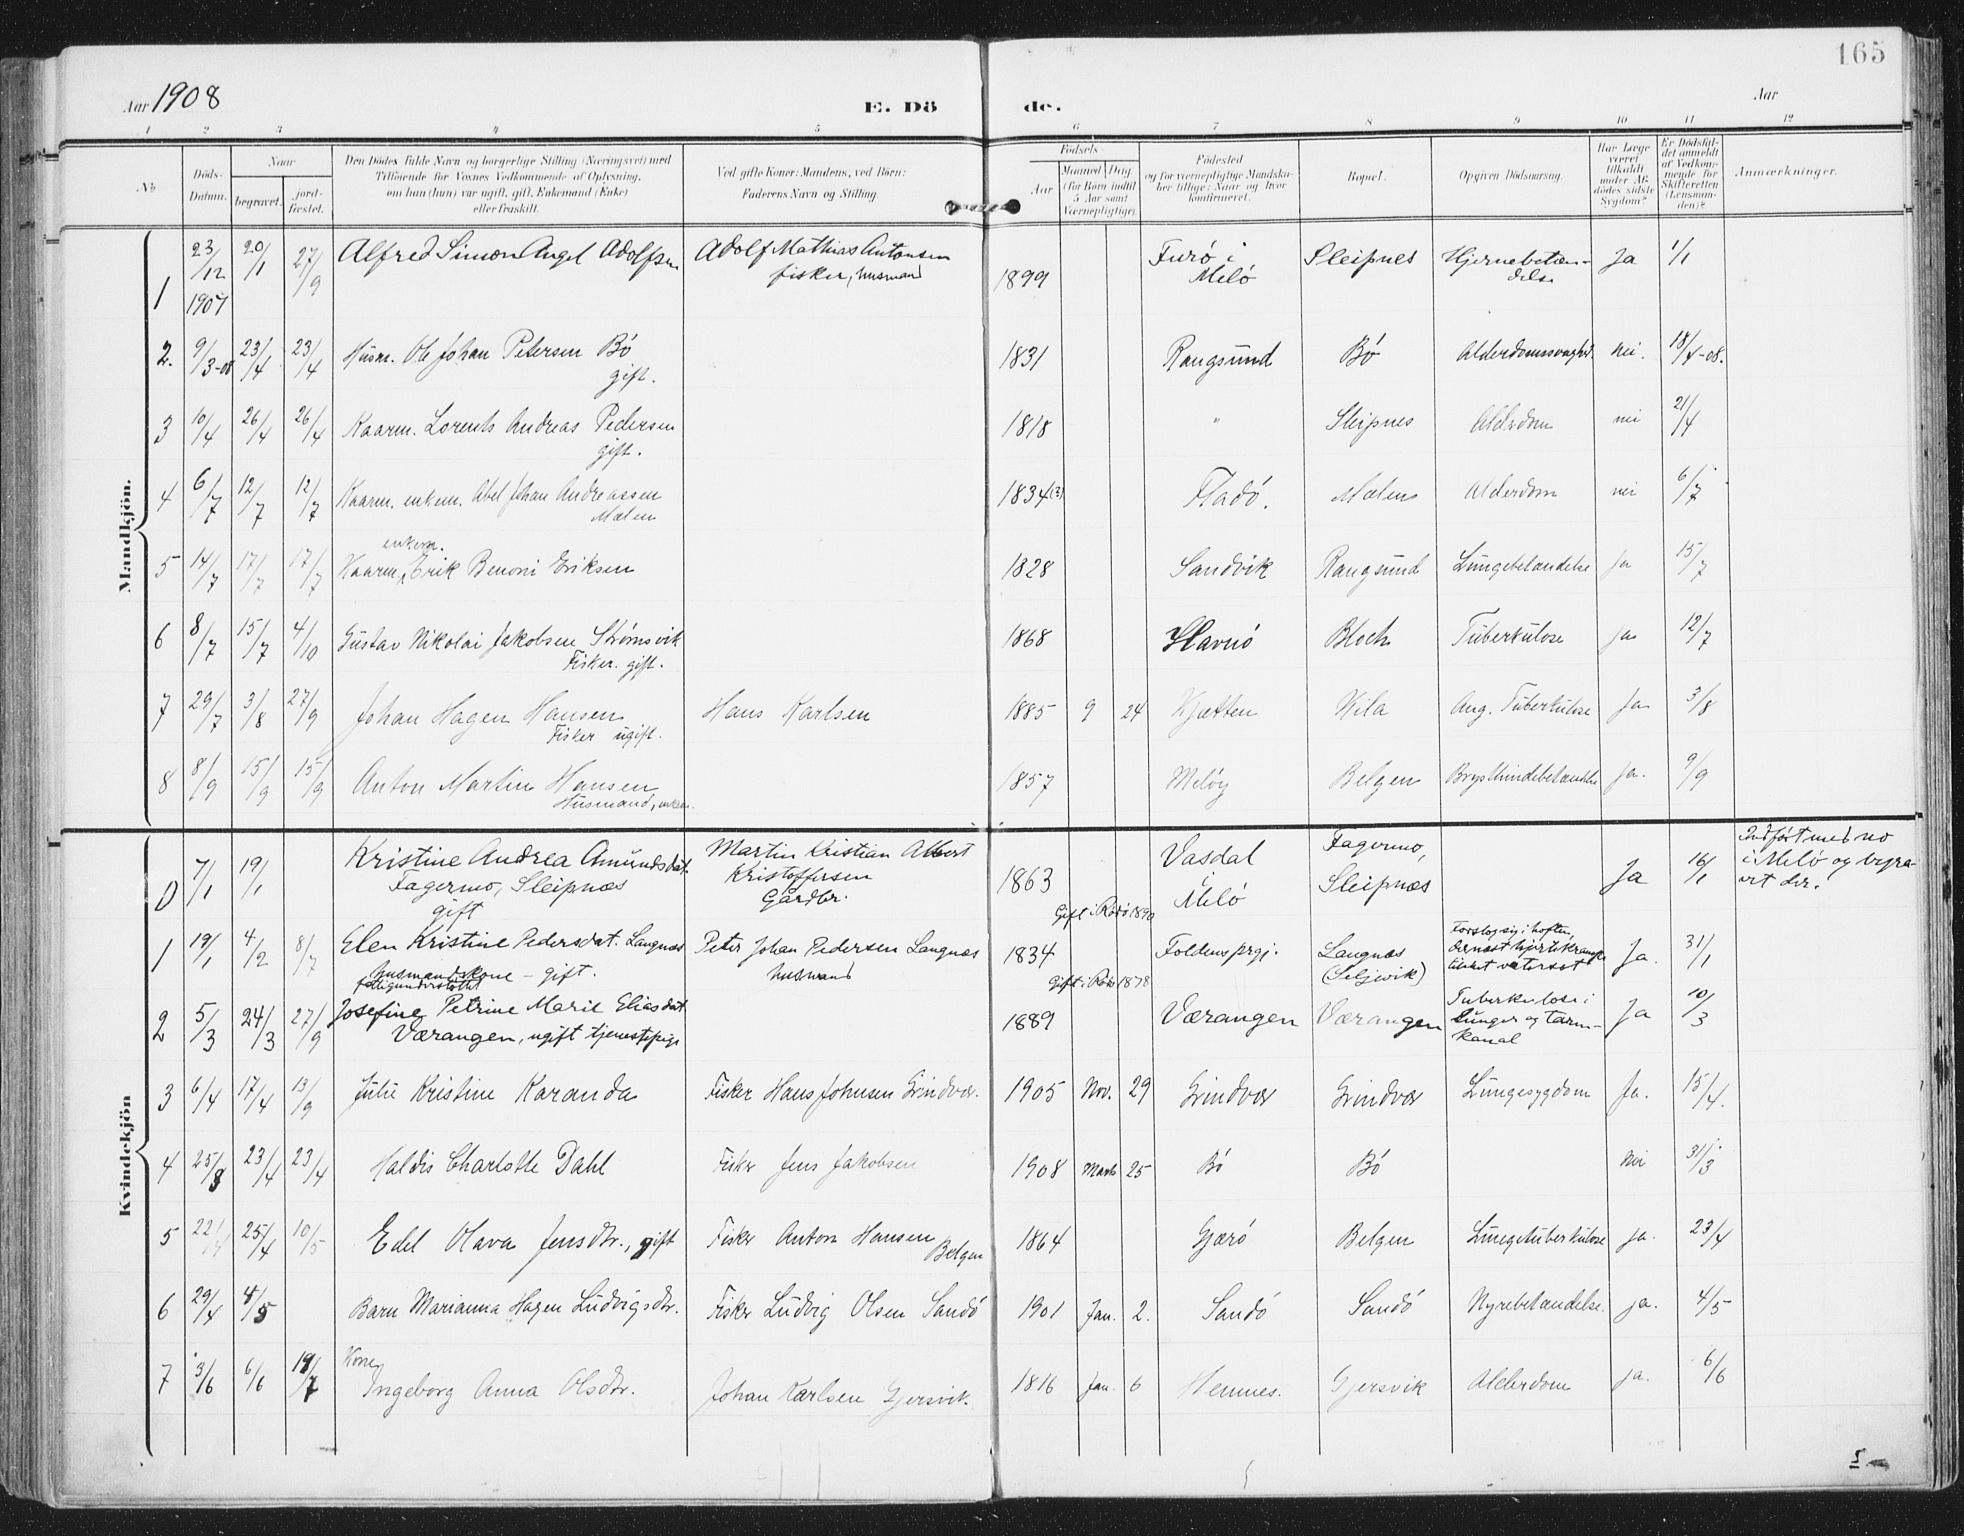 165
Aar 1908 E. Dö de. Aar
1 2 3 4 5 6 7 8 9 10 11 12
No Döds-Datum. Naar begravet. jordfæstet. Den Dödes fulde Navn og borgerlige Stilling (Næringsvei) med Tilföiende for Voxnes Vedkommende af Oplysning, om han (hun) var ugift, gift, Enkemand (Enke) eller fraskilt. Ved gifte Koner: Mandens, ved Börn: Faderens Navn og Stilling. Födsels- Aar Maaned Dag (for Börn indtil 5 Aar samt Værnepligtige). Födested og for værnepligtige Mandskaber tillige: Naar og hvor konfirmeret. Bopæl. Opgiven Dödsaarsag. Har Læge været tilkaldt under Afdödes sidste Sygdom? Er Dödsfaldet anmeldt af Vedkommende for Skifteretten (Lensmanden)? Anmærkninger.
Mandkjön.
1 23/12 1907 20/1 27/9 Alfred Simon Angel Adolfsen Adolf Mathias Antonsen fisker, husmand 1899 Furö i Melö Sleipnes Hjernebetændelse Ja 1/1
2. 9/3-08 23/4 23/4 Husm. Ole Johan Petersen Bö gift. 1831 Rangsund Bö Alderdomssvaghed. nei. 18/4-08.
3 10/4 26/4 26/4 Kaarm. Lorents Andreas Pedersen gift. 1818 " Sleipnes Alderdom nei 21/4
4 6/7 12/7 12/7 Kaarm. enkem. Abel Johan Andreassen Mælen 1834(?) Fladö. Mælen Alderdom nei 6/7
5 14/7 17/7 17/7 Kaarm, enkem. Erik Benoni Eriksen 1828 Sandvik Rangsund Lungebetændelse ja 15/7
6 8/7 15/7 4/10 Gustav Nikolai Jakobsen Strømsvik Fisker. gift. 1868 Havnö Bloch Tuberkulose ja 12/7
7 29/7 3/8 27/9 Johan Hagen Hansen Fisker ugift. Hans Karlsen 1885 9 24 Kjætten Kila Tuberkulose Ja 3/8
8 8/9 15/9 15/9 Anton Martin Hansen Husmand, enkem. 1857 Melöy Belgen Brysthindebetændelse ja. 9/9
Kvindekjön
0 7/1 19/1 Kristine Andrea Amundsdat. Fagermo, Sleipnæs gift Martin Kristian Albert Kristoffersen Gårdbr. 1863 Gift i Rödö 1890 Vasdal i Melö Fagermo, Sleipnæs Ja 16/1 Indført med no i Melö og begravet der.
1 19/1 4/2 8/7 Elen Kristine Pedersdat. Langnæs husmandskone - gift. fattigunderstöttet Peter Johan Pedersen Langnæs husmand 1834 Gift i Rödö 1878 Foldens prgj. Langnæs (Seljevik) Forslog sig i hoften, dernæst Ja. 31/1
2 5/3 24/3 27/9 Josefine Petrine Marie Eliasdat Værangen, ugift tjenestepige 1889 Værangen Værangen Tuberkulose i Lunger og tarmkanal Ja 10/3
3 6/4 17/4 13/9 Julie Kristine Karanda Fisker Hans Johnsen Grindvær. 1905 Nov. 29 Grindvær Grindvær Lungesygdom Ja. 15/4.
4 25/3 23/4 23/4 Haldis Charlotte Dahl Fisker Jens Jakobsen 1908 Marts 25 Bö Bö Nei 31/3
5 22/4 25/4 10/5 Edel Olava Jensdtr., gift Fisker Anton Hansen Belgen 1864 Gjærö Belgen Lungetuberkulose ja. 23/4
6 29/4 4/5 Barn Marianna Hagen Ludvigsdtr. Fisker Ludvig Olsen Sandö 1901 Jan. 2. Sandö Sandö Nyrebetændelse. ja. 4/5
7 3/6 6/6 19/7 Kone Ingeborg Anna Olsdtr. Johan Karlsen Gjersvik. 1816 Jan. 6 Hemnes. Gjersvik Alderdom ja. 6/6